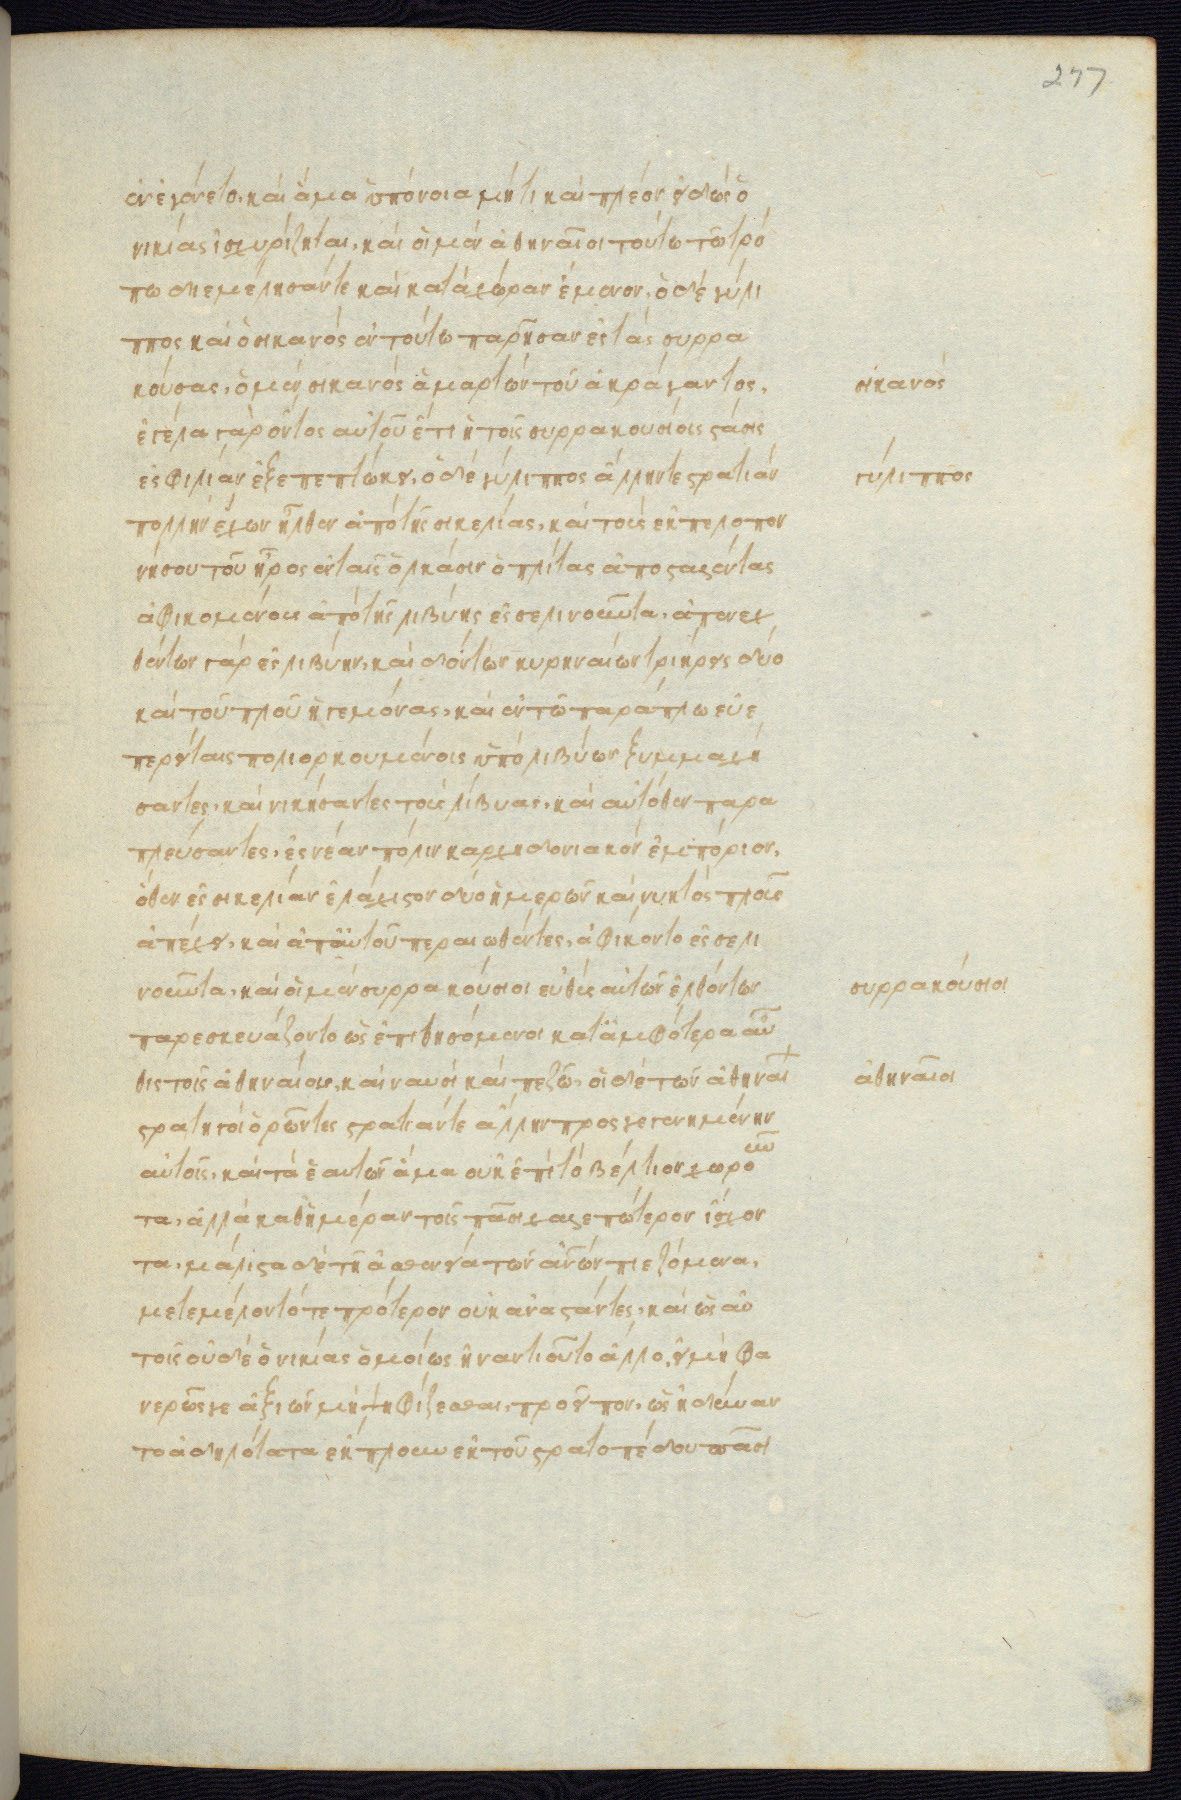 277
ἐνεγένετο, καὶ ἅμα ὑπόνοια μή τι καὶ πλέον εἰδὼς ὁ
νικίας ἰσχυρίζηται, καὶ οἱ μὲν ἀθηναῖοι τούτω τῶ τρό
πω διεμέλησάν τε καὶ κατὰ χώραν ἔμενον, ὁ δὲ γύλι
ππος καὶ ὁ σικανὸς ἐν τούτω παρῆσαν ἐς τὰς συρρα
κούσας, ὁ μὲν σικανὸς ἁμαρτὼν τοῦ ἀκράγαντος,
σικανός
ἐγέλα γὰρ ὄντος αὐτοῦ ἔτι ἡ τοῖς συρρακουσίοις στάσις
ἐς φιλίαν ἐξεπεπτώκει, ὁ δὲ γύλιππος ἄλλην τε στρατιὰν
γύλιππος
πολλὴν ἔχων ἦλθεν ἀπὸ τῆς σικελίας, καὶ τοὺς ἐκ πελοπον
νήσου τοῦ ἦρος ἐν ταῖς ὁλκάσιν ὁπλίτας ἀποσταλέντας
ἀφικομένους ἀπὸ τῆς λιβύης ἐς σελινοῦντα, ἀπενεχ
θέντων γὰρ ἐς λιβύην, καὶ δόντων κυρηναίων τριήρεις δύο
καὶ τοῦ πλοῦ ἡγεμόνας, καὶ ἐν τῶ παράπλω εὐε
περίταις πολιορκουμένοις ὑπὸ λιβύων ξυμμαχή
σαντες, καὶ νικήσαντες τοὺς λίβυας, καὶ αὐτόθεν παρα
πλεύσαντες, ἐς νέαν πόλιν καρχηδονιακὸν ἐμπόριον,
ὅθεν ἐς σικελίαν ἐλάχιστον δύο ἡμερῶν καὶ νυκτὸς πλοῦς
ἀπέχει, καὶ ἀπ' αὐτοῦ περαιωθέντες, ἀφίκοντο ἐς σελι
νοῦντα, καὶ οἱ μὲν συρρακούσιοι εὐθὺς αὐτῶν ἐλθόντων
συρρακούσιοι
παρεσκευάζοντο ὡς ἐπιθησόμενοι κατ' ἀμφότερα αὖ
θις τοῖς ἀθηναίοις, καὶ ναυσὶ καὶ πεζῶ, οἱ δὲ τῶν ἀθηναί
ἀθηναῖοι
στρατηγοὶ ὁρῶντες στρατιάν τε ἄλλην προσγεγενημένην
αὐτοῖς, καὶ τὰ ἑαυτῶν ἅμα οὐκ ἐπὶ τὸ βέλτιον χωροῦν
τα, ἀλλὰ καθ' ἡμέραν τοῖς πᾶσι χαλεπώτερον ἴσχον
τα, μάλιστα δὲ τῆ ἀσθενεία τῶν ἀνων πιεζόμενα,
μετεμέλοντό τε πρότερον οὐκ ἀναστάντες, καὶ ὡς αὐ
τοῖς οὐδὲ ὁ νικίας ὁμοίως ἠναντιοῦτο ἀλλ' ὁ, εἰ μὴ φα
νερῶς γε ἀξιῶν μὴ ψηφίζεσθαι, προεῖπον, ὡς ἠδύναν
το ἀδηλότατα ἔκπλουν ἐκ τοῦ στρατοπέδου πᾶσι